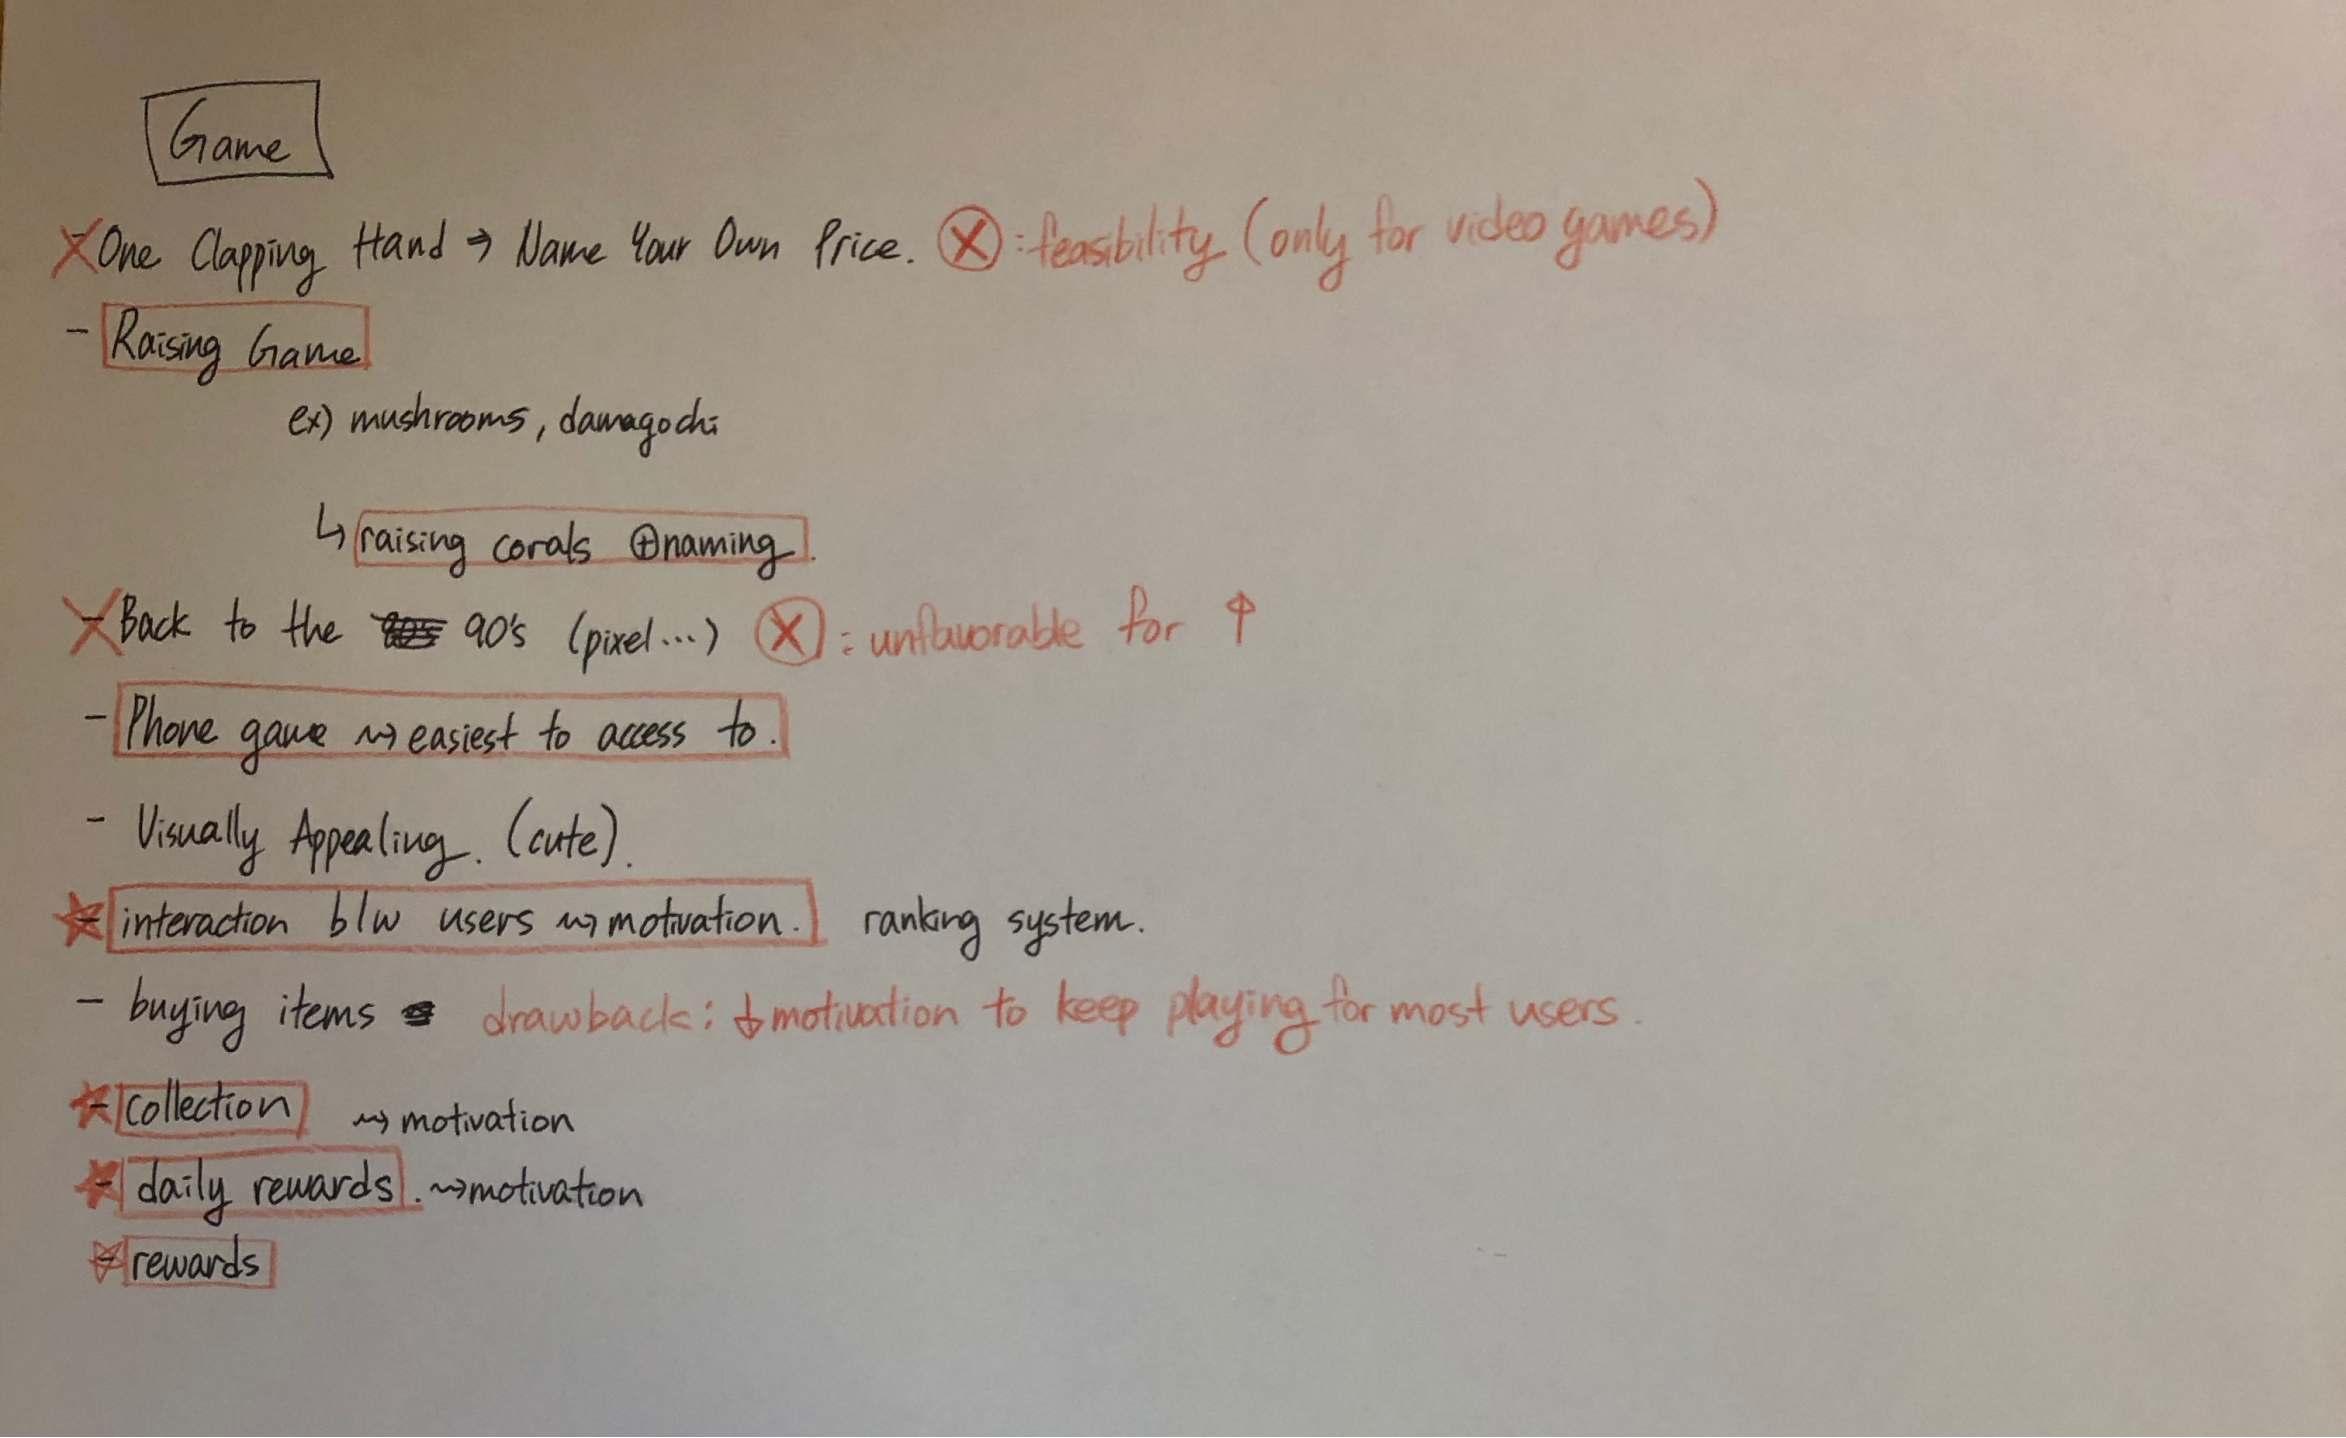 Game
- One Clapping Hand ⇒ Name Your Own Price. ⓧ : feasibility (only for video games)
- Raising Game
ex) mushrooms, damagochi
↳ raising corals ⊕ naming.
- Back to the 90's (pixel...) ⓧ : unfavorable for ↑
- Phone game ⇝ easiest to access to.
- Visually Appealing. (cute).
- interaction b/w users ⇝ motivation. ranking system.
- buying items drawback: ↓ motivation to keep playing for most users.
- collection ⇝ motivation
- daily rewards. ⇝ motivation
- rewards